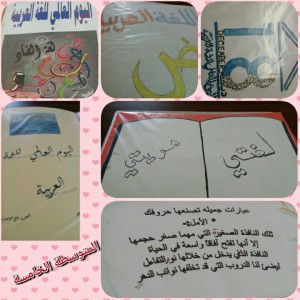 اليوم العالمي للغة العربية
لغة الضاد
اللغة العربية
ض
18
DECEMBER
لغتي
هويتي
اليوم العالمي للغة
العربية
عبارات جميله تصنعها حروفك
* الأمل:-
تلك النافذة الصغيرة التي مهما صغر حجمها
إلا أنها تفتح آفاقا واسعة في الحياة
النافذة الذي يدخل من خلالها نور التفاءل
ليضئ لنا الدروب التي قد تخلقها نوائب الدهر
المتوسطة الخامسة